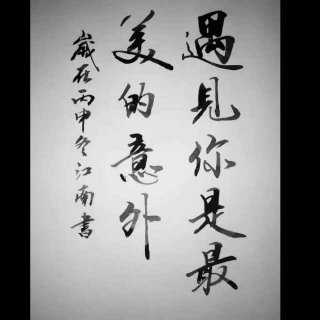 遇见你是最
美的意外
歲在丙申冬江南書